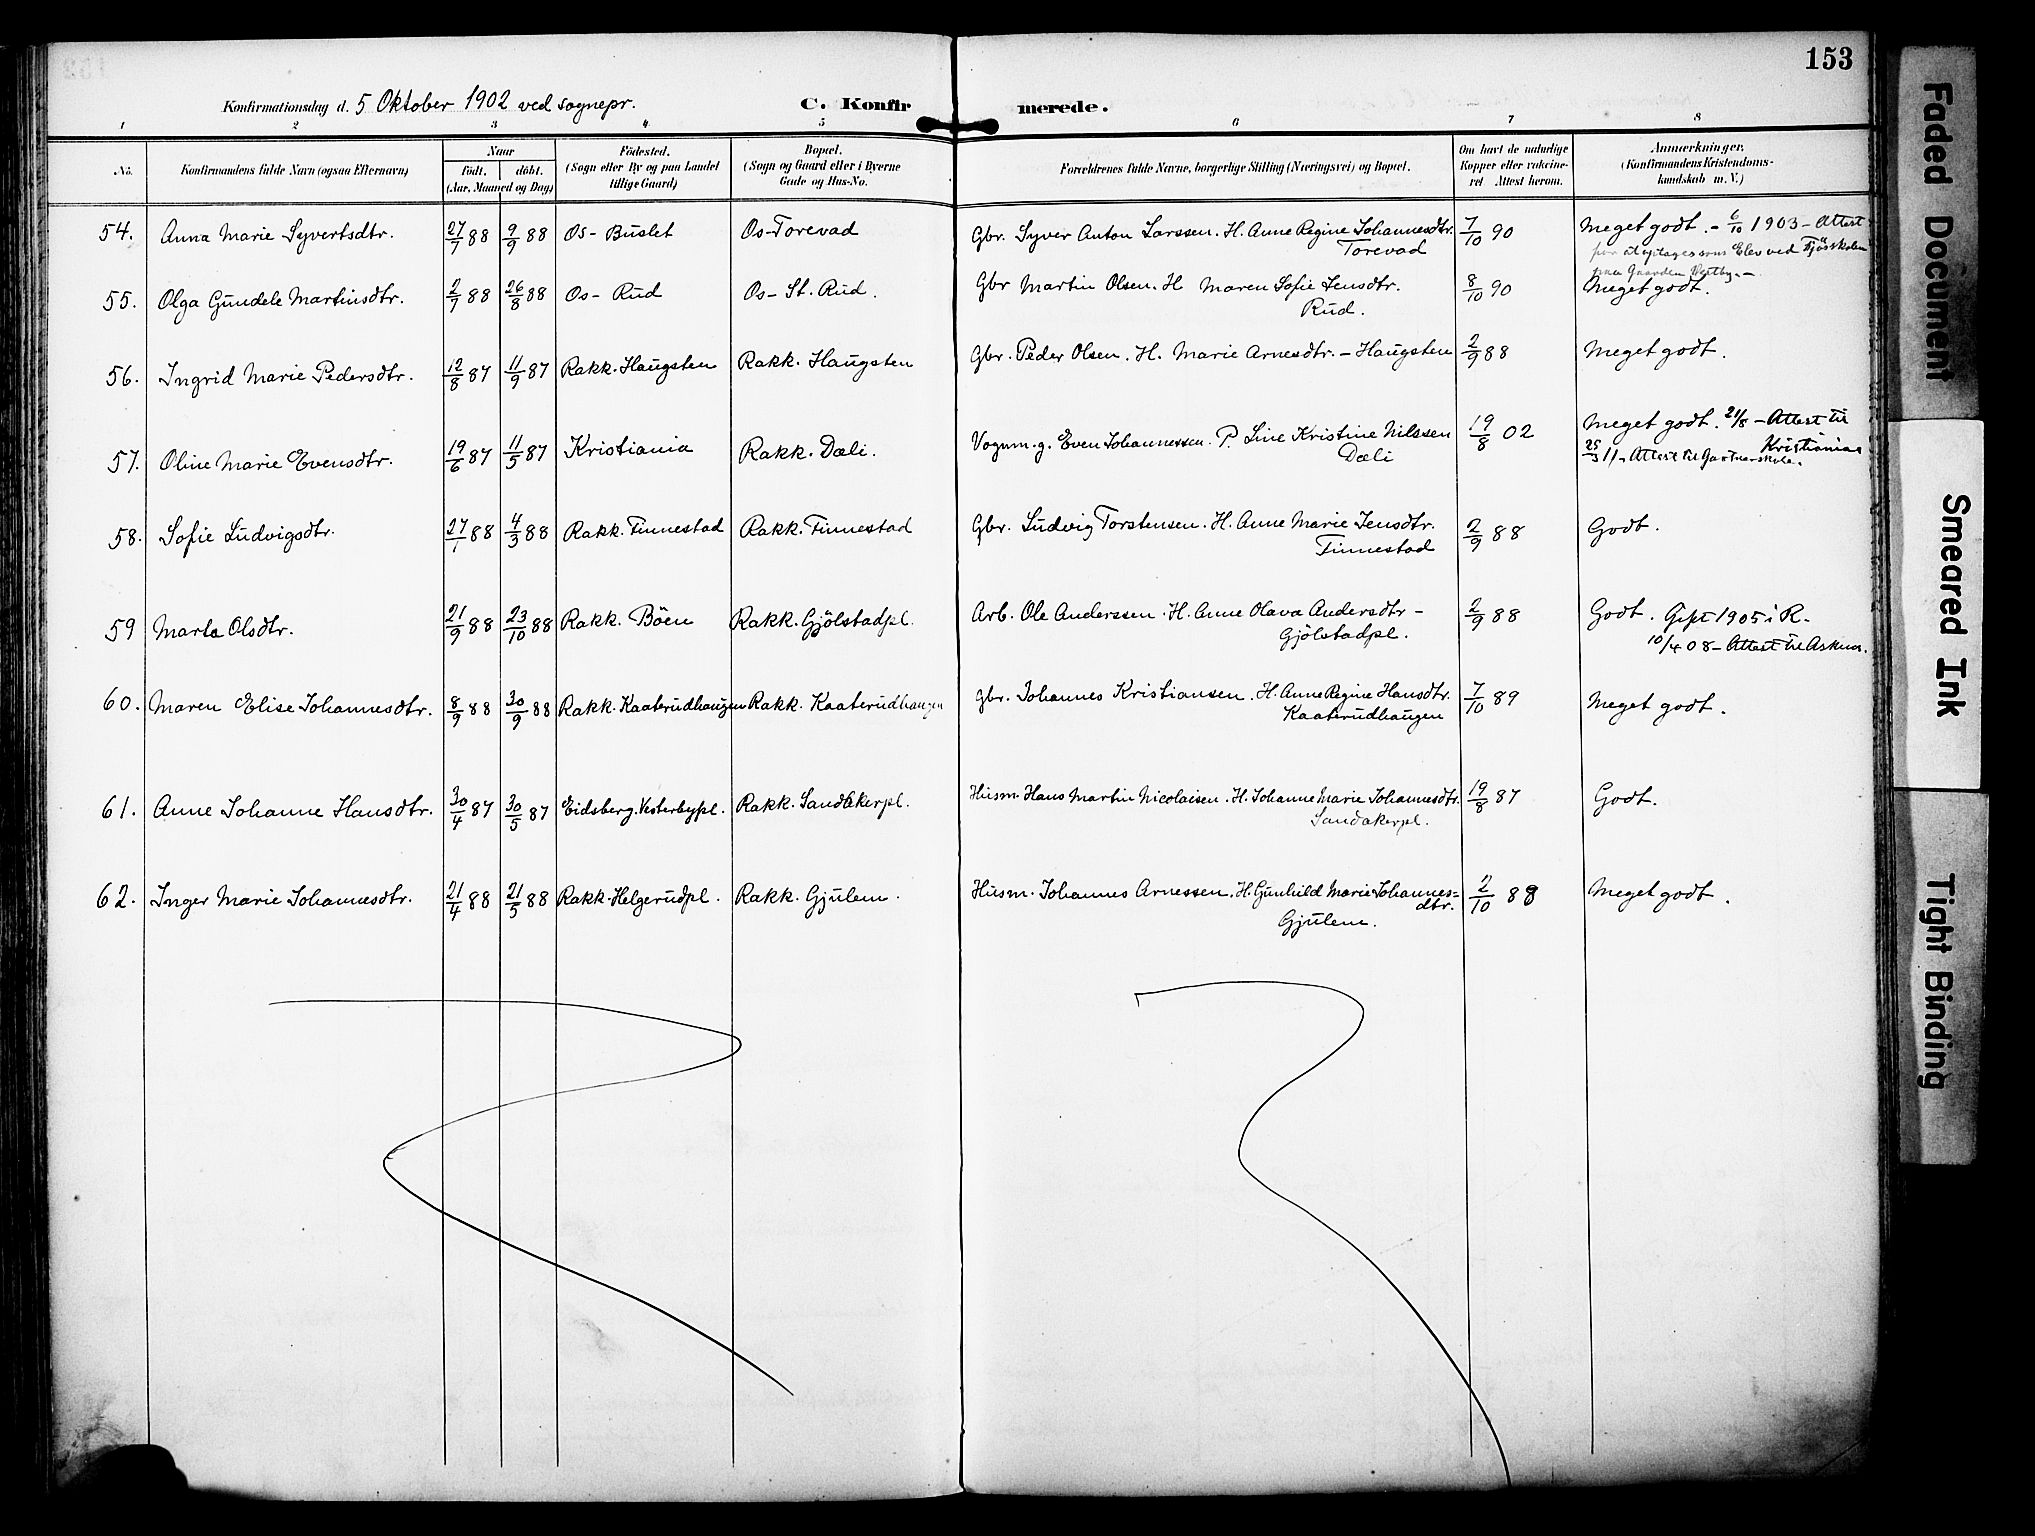 153
Konfirmationsdag d. 5 Oktober 1902 ved sognepr. C. Konfirmerede.
1 2 3 4 5 6 7 8
No. Konfirmandens fulde Navn (ogsaa Efternavn) Naar født. døbt. (Aar, Maaned og Dag) Fødested. (Sogn eller By og paa Landet tillige Gaard) Bopæl. (Sogn og Gaard eller i Byerne Gade og Hus-No. Forældrenes fulde Navne, borgerlige Stilling (Næringsvei) og Bopæl. Om havt de naturlige Kopper eller vaccineret Attest herom. Anmærkninger. (Konfirmandens Kristendomskundskab m. V.)
54. Anna Marie Syvertsdtr. 27/7 88 9/9 88 Os- Buslet Os-Torevad Gbr. Syver Anton Larssen. H. Anne Regine Johannesdtr. Torevad 7/10 90 Meget godt. - 6/10 1903 - Attest
for at optages som Elev ved Fjösskolen
paa Gaarden
55. Olga Gundele Martinsdtr. 2/7 88 26/8 88 Os- Rud Os- St. Rud. Gbr Martin Olsen. H Maren Sofie Jensdtr. Rud. 8/10 90 Meget godt.
56. Ingrid Marie Pedersdtr. 12/8 87 11/9 87 Rakk. Haugsten Rakk. Haugsten Gbr. Peder Olsen. H. Marie Arnesdtr. - Haugsten 2/9 88 Meget godt.
57. Oline Marie Evensdtr. 19/6 87 11/5 87 Kristiania Rakk. Dæli. Vognm.g. Even Johannessen. P. Line Kristine Nilssen Dæli 19/8 02 Meget godt. 21/8 - Attest til Kristiania
25/3 11 - Attest til
58. Sofie Ludvigsdtr. 27/1 88 4/3 88 Rakk. Finnestad Rakk. Finnestad Gbr. Ludvig Torstensen. H. Anne Marie Jensdtr. Finnestad 2/9 88 Godt.
59 Marta Olsdtr. 21/9 88 23/10 88 Rakk. Böen Rakk. Gjölstadpl. Arb. Ole Anderssen. H. Anne Olava Andersdtr - Gjölstadpl. 2/9 88 Godt. Gift 1905 i R.
10/4 08 - Attest til Askim.
60. Maren Elise Johannesdtr. 8/9 88 30/9 88 Rakk. Kaaterudhaugen Rakk. Kaaterudhaugen Gbr. Johannes Kristiansen. H. Anne Regine Hansdtr. Kaaterudhaugen 7/10 89 Meget godt.
61. Anne Johanne Hansdtr. 30/4 87 30/5 87 Eidsberg. Vesterbypl. Rakk. Sandakerpl. Husm. Hans Martin Nicolaisen. H. Johanne Marie Johannesdtr. Sandakerpl. 19/8 87 Godt.
62. Inger Marie Johannesdtr. 21/4 88 21/5 88 Rakk. Helgerudpl. Rakk. Gjulem. Husm. Johannes Arnessen. H. Gunhild Marie Johannes=dtr. Gjulem. 2/10 88 Meget godt.
Faded Document
Smeared Ink
Tight Binding